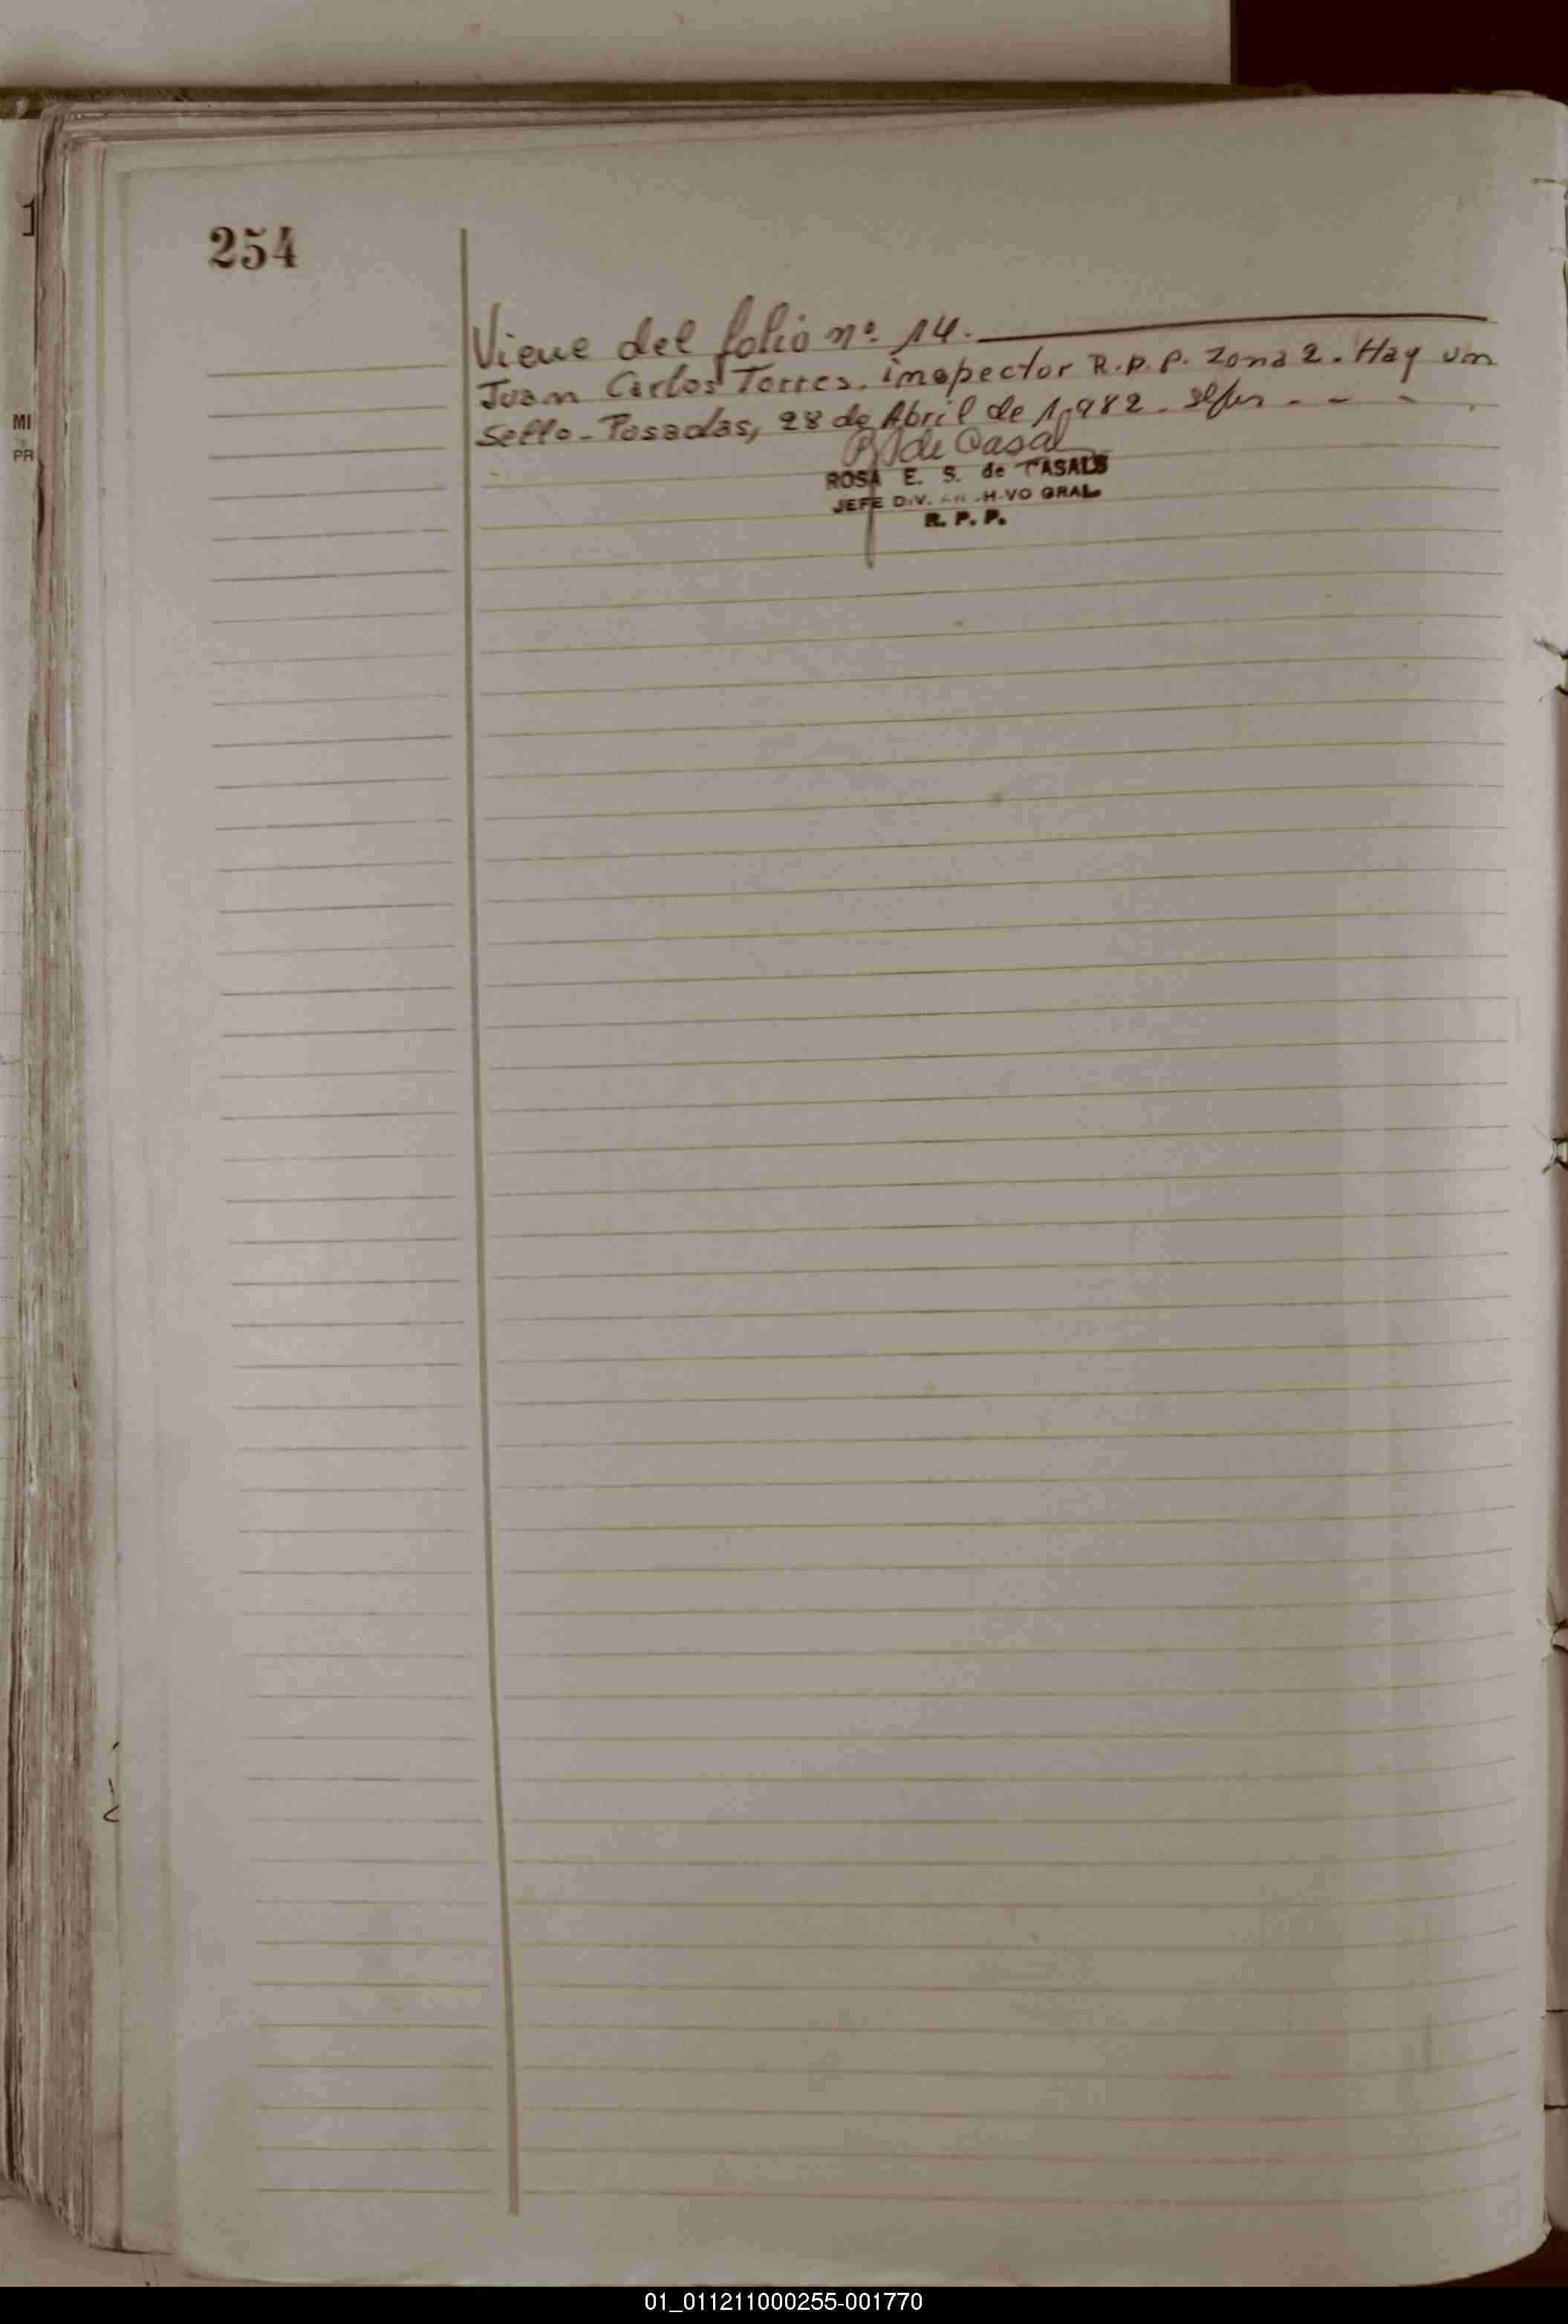 254
Viene del folio nº 14.
Juan Carlos Torres. inspector R.P.P. Zona 2. Hay un
Sello - Posadas, 28 de Abril de 1.982 -
de Casals
ROSA E. S. de CASALS
JEFE DIV. ARCHIVO GRAL
R. P. P.
MI
PR
01_011211000255-001770